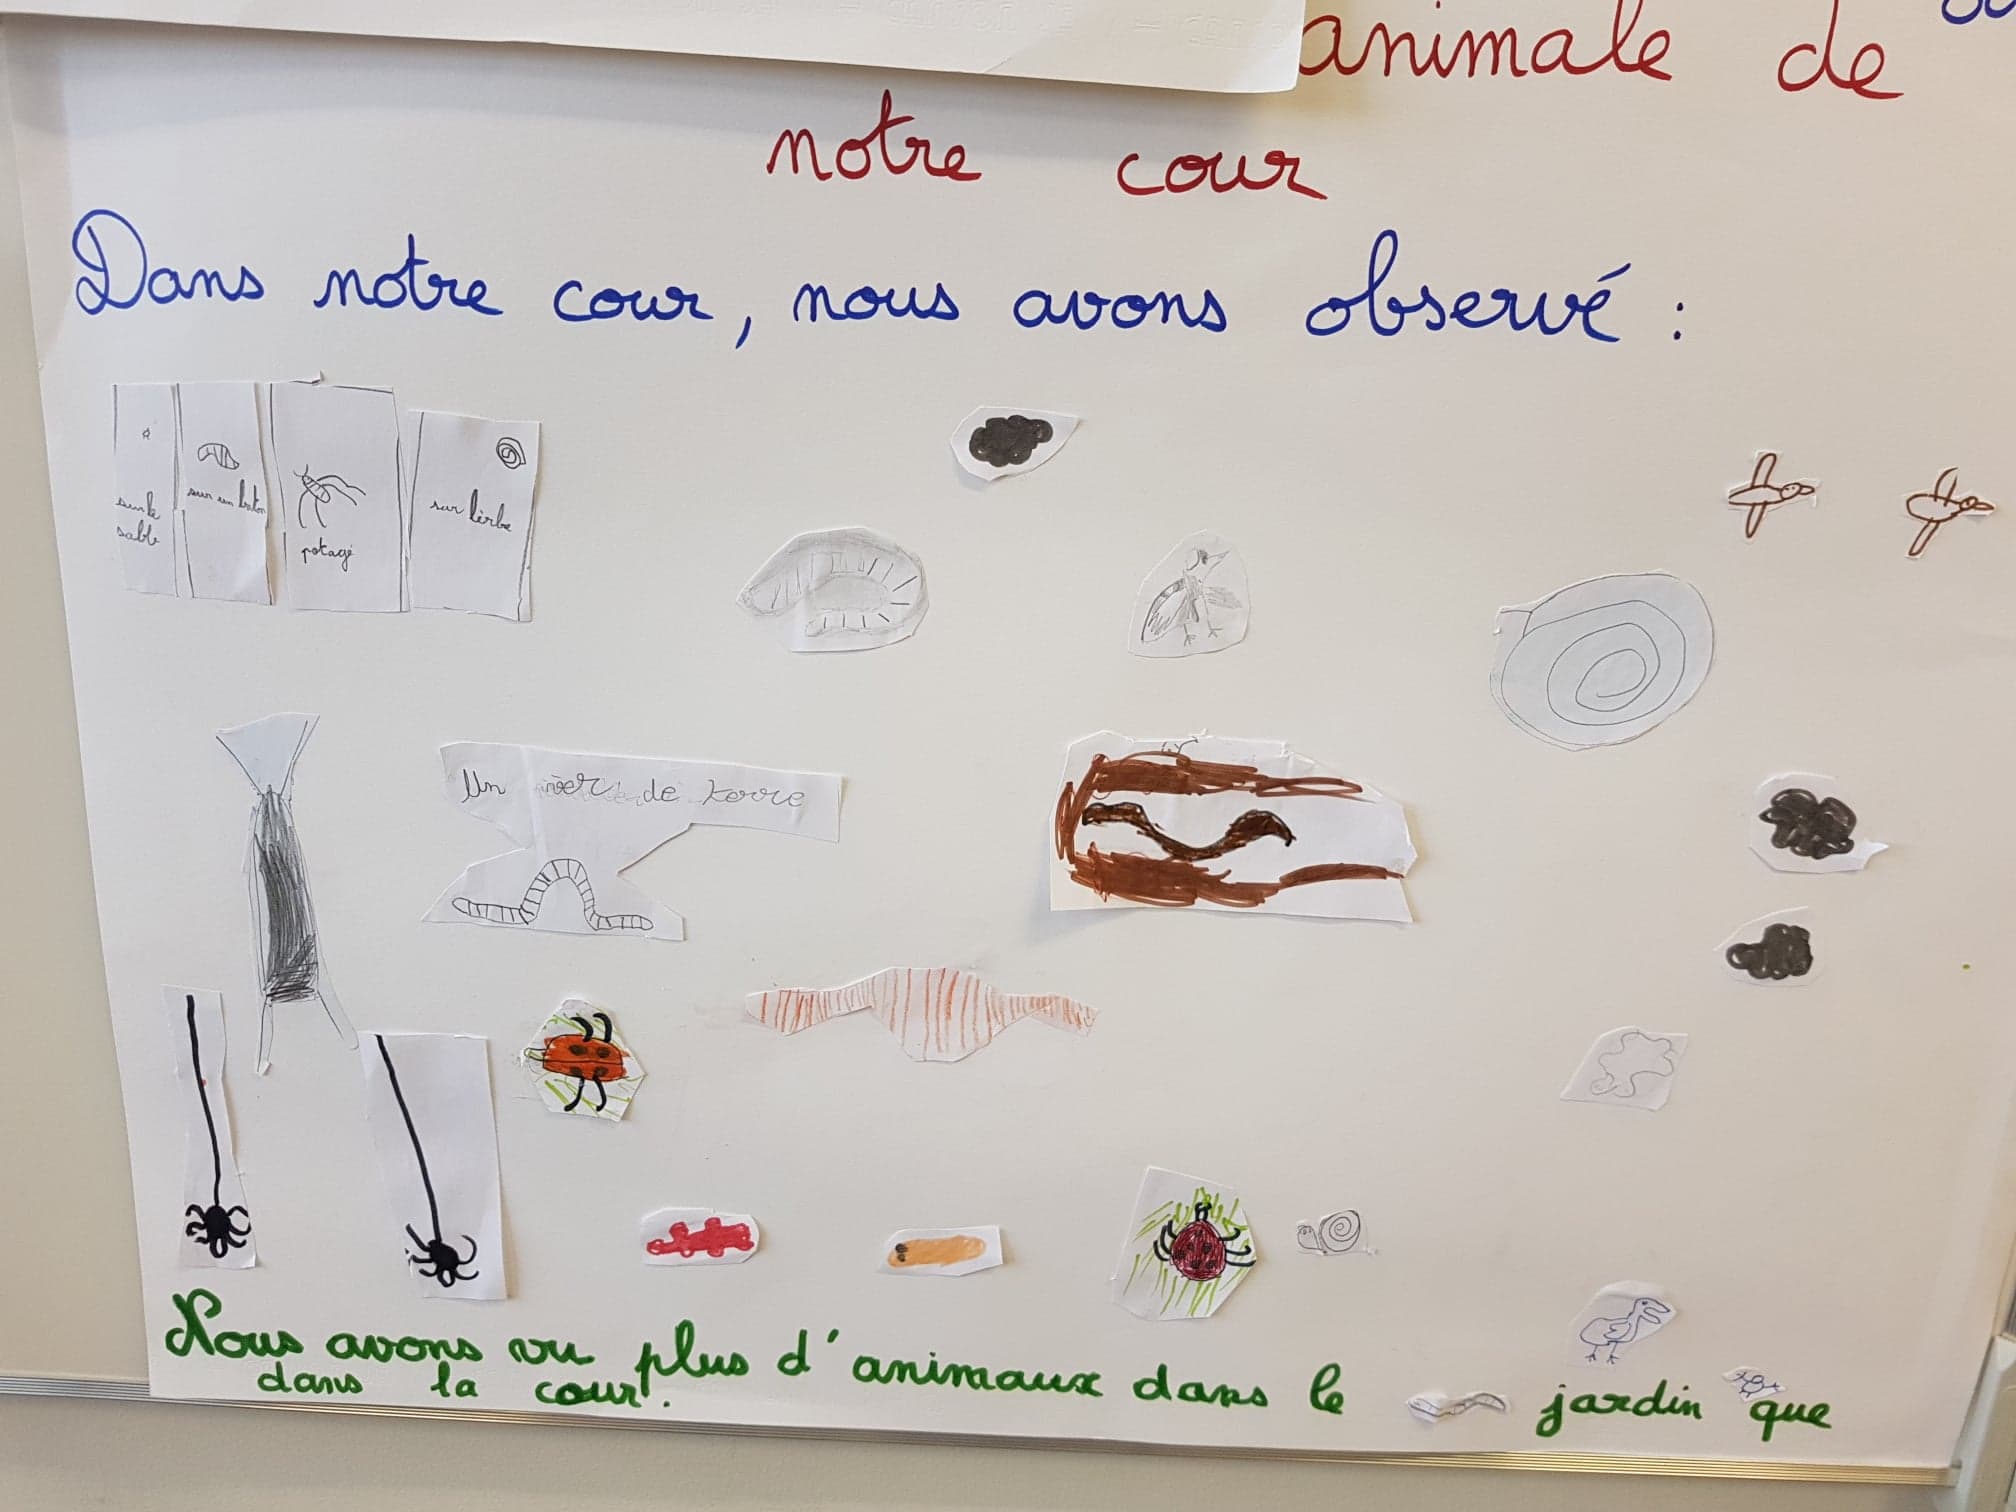 animale de
notre cour
Dans notre cour, nous avons observé :
sur le
sable
sur un baton
potagé
sur lèrbe
Un ver de terre
Nous avons vu plus d'animaux dans le jardin que
dans la cour.